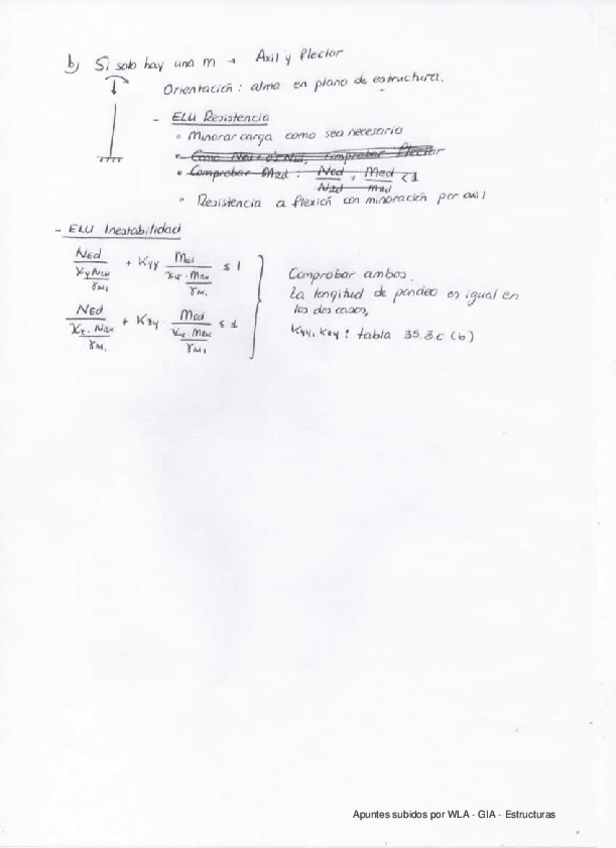 b) Si solo hay una M → Axil y Flector
Orientación: alma en plano de estructura.
- ELU Resistencia
• Minorar carga como sea necesario
• Comprobar : Ned / Nzd + Med / Mzd < 1
• Resistencia a flexión con minoración por axil
- ELU Inestabilidad
NEd / (χy NRk / γM1) + Kyy Med / (χLT · MRk / γM1) ≤ 1
NEd / (χz · NRk / γM1) + Kzy · Med / (χLT · MRk / γM1) ≤ 1
Comprobar ambos.
La longitud de pandeo es igual en
los dos casos,
Kyy, Kzy : tabla 35.3.c (b)
Apuntes subidos por WLA - GIA - Estructuras